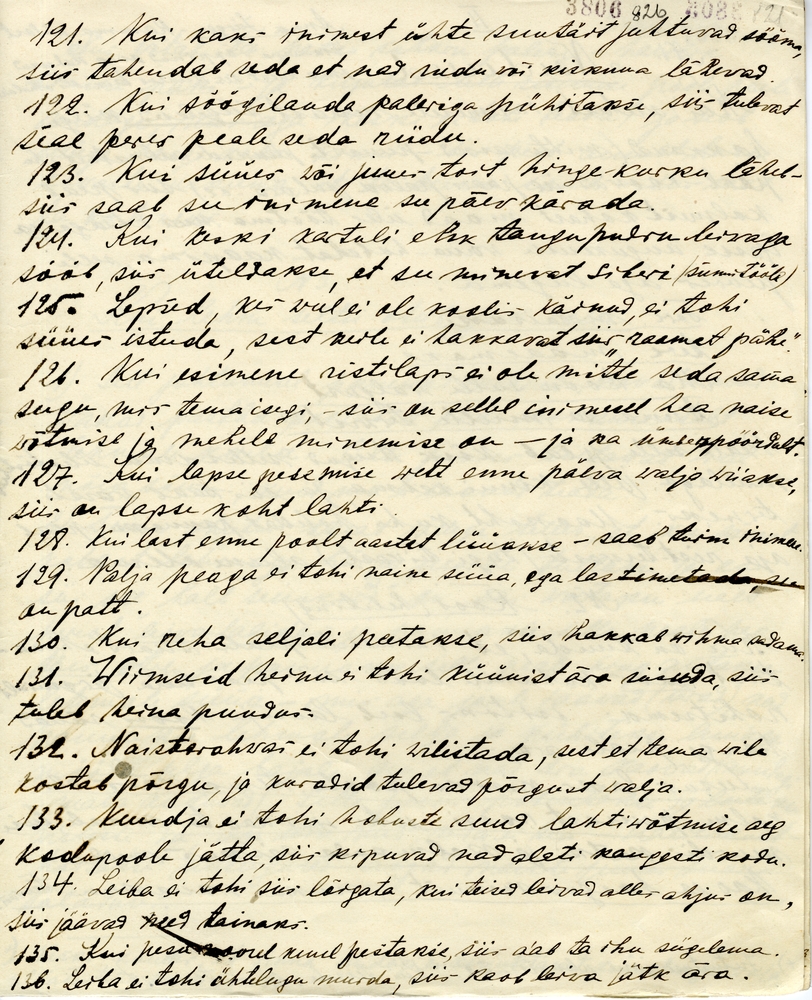 3806 826 121
121. Kui kaks inimest ühte suutäit juhtuvad sööma,
siis tähendab seda et nad riidu või kiskuma lähevad.
122. Kui söögilauda paberiga pühitakse, siis tulevat
seal peres peale seda riidu.
123. Kui süües või juues toit hinge-kurku läheb-
siis saab see inimene sel päev kärada.
124. Kui keski kartuli ehk tangupudru leivaga
sööb, siis üteldakse, et see minevat Siberi (sunnitööle)
125. Lapsed, kes weel ei ole koolis käinud, ei tohi
süües istuda, sest neile ei hakkavat siis raamat pähe".
126. Kui esimene ristilaps ei ole mitte seda sama
sugu, mis tema isegi, - siis on sellel inimesel hea naise
wõtmise ja mehele minemise on - ja ka ümberpöördult.
127. Kui lapse pesemise wett enne päeva walja wiiakse,
siis on lapse koht lahti.
128. Kui last enne poolt aastat lüüakse - saab tuim inimene.
129. Palja peaga ei tohi naine süüa, ega last imetada, see
on patt.
130. Kui reha seljali peetakse, siis hakkab wihma sadama.
131. Wiimseid heinu ei tohi küünist ära süsuda, siis
tuleb heina puudus.
132. Naisterahwas ei tohi wilistada, sest et tema wile
kostab põrgu, ja kuradid tulevad põrgust walja.
133. Kündja ei tohi hobuste suud lahtiwõtmise aeg
kodupoole jätta, siis kipuvad nad alati kangesti kodu.
134. Leiba ei tohi siis lõigata, kui teised leivad alles ahjus on,
siis jäävad need tainaks.
135. Kui pesu noorel kuul pestakse, siis a'ab ta ihu sügelema.
136. Leiba ei tohi ühtelugu murda, siis kaob leiva jätk ära.